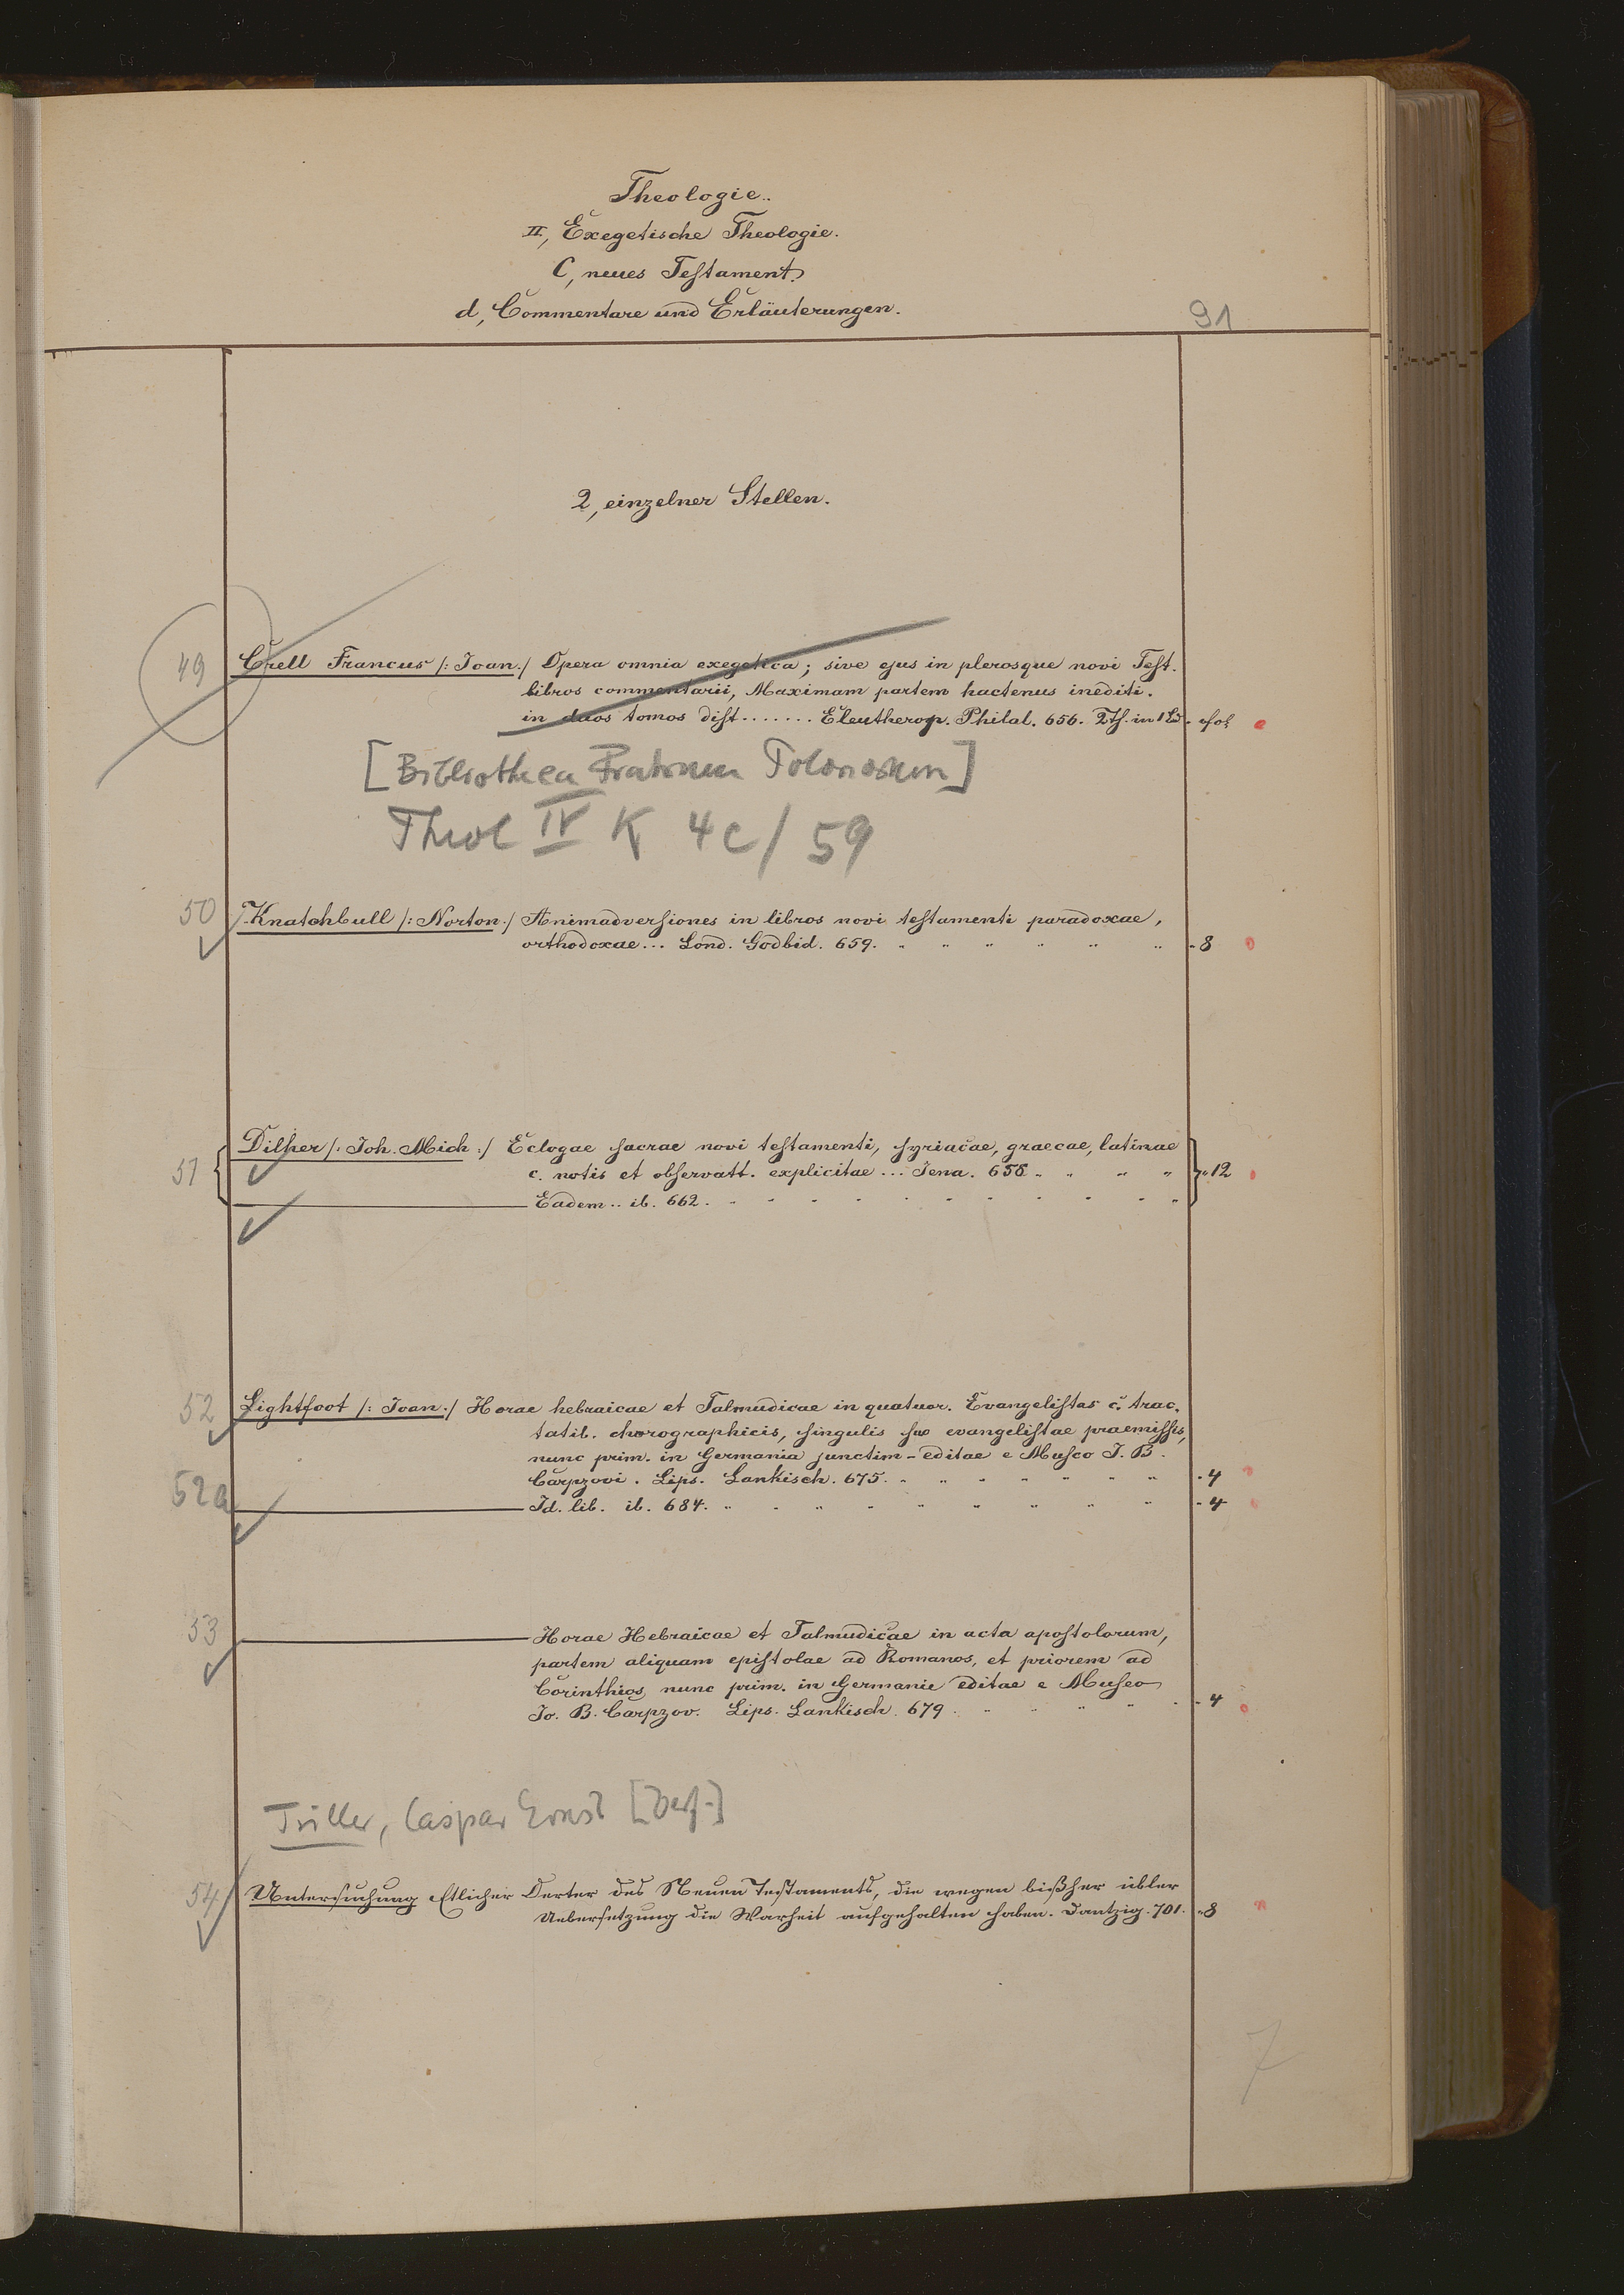 Theologie.
II, Exegetische Theologie.
C, neues Testament.
d, Commentare und Erläuterungen.
91
2, einzelner Stellen.
49 Crell Francus /: Joan :/ Opera omnia exegetica; sive ejus in plerosque novi Test.
libros commentarii, Maximam partem hactenus inediti.
in duos tomos dist....... Eleutherop. Philal. 656. 2 Th. in 1 Bd. fol.
[Bibliotheca Fratrum Polonorum]
Theol IV K 4c/59
50 Knatchbull /: Norton :/ Animadversiones in libros novi testamenti paradoxae,
orthodoxae... Lond. Godbid. 659. - 8
51 Dilher /: Joh. Mich :/ Eclogae sacrae novi testamenti, syriacae, graecae, latinae
c. notis et observatt. explicitae... Jena. 658 12
Eadem.. ib. 662.
52 Lightfoot /: Joan :/ Horae hebraicae et Talmudicae in quatuor. Evangelistas c. trac,
tatib. chorographicis, singulis suo evangelistae praemissis,
nunc prim. in Germania junctim-editae e Museo J. B.
Carpzovi. Lips. Lankisch. 675. - 4
52a Id. lib. ib. 684. - 4
53 Horae Hebraicae et Talmudicae in acta apostolorum,
partem aliquam epistolae ad Romanos, et priorem ad
Corinthios nunc prim. in Germanie editae e Museo
Jo. B. Carpzov. Lips. Lankisch. 679. - 4
Triller, Caspar Ernst [Verf.]
54 Untersuchung Etlicher Oerter des Neuen Testaments, die wegen bißher übler
Uebersetzung die Warheit aufgehalten haben. Dantzig. 701. - 8
7